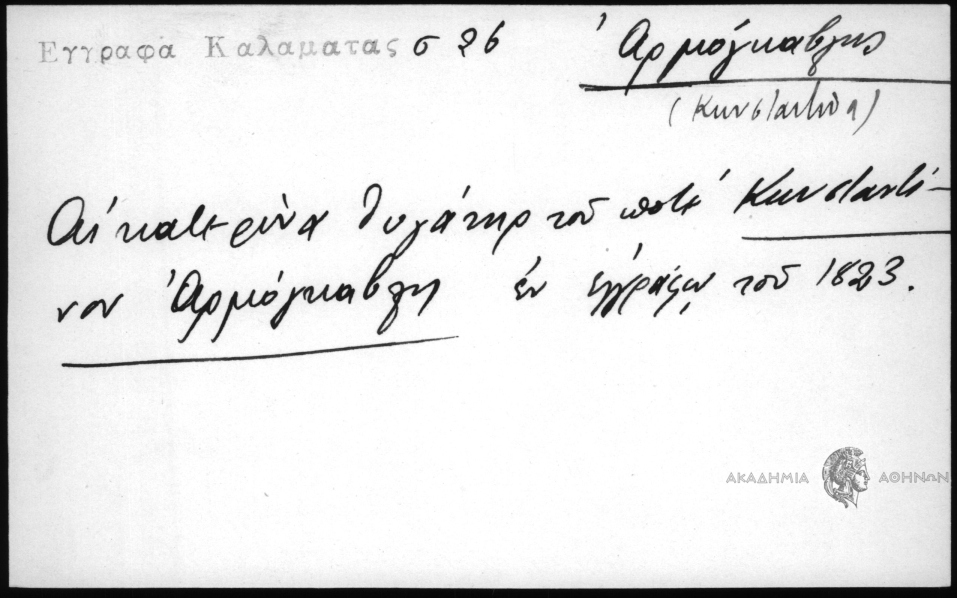 Εγγραφα Καλαματας σ 26
Ἁρμόγκαβλης
(Κωνσταντίνα)
Αἰκατερίνα θυγάτηρ τοῦ ποτέ Κωνσταντί-
νου Ἁρμόγκαβλη ἐν ἐγγράφῳ τοῦ 1823.
ΑΚΑΔΗΜΙΑ ΑΘΗΝΩΝ